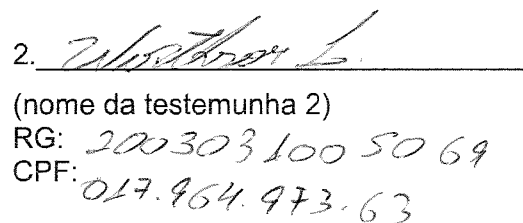 2. Winsthror L.
(nome da testemunha 2)
RG: 2003031005069
CPF: 017.964.973.63